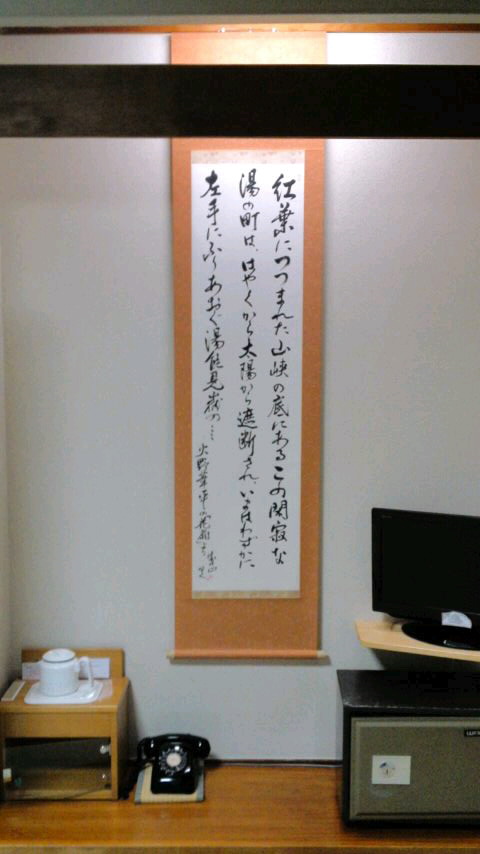 紅葉につつまれた山峡の底にあるこの閑寂な
湯の町は、はやくから太陽から遮断され、いまはわずかに
左手にふりあおぐ湯能見岳の…
火野葦平の